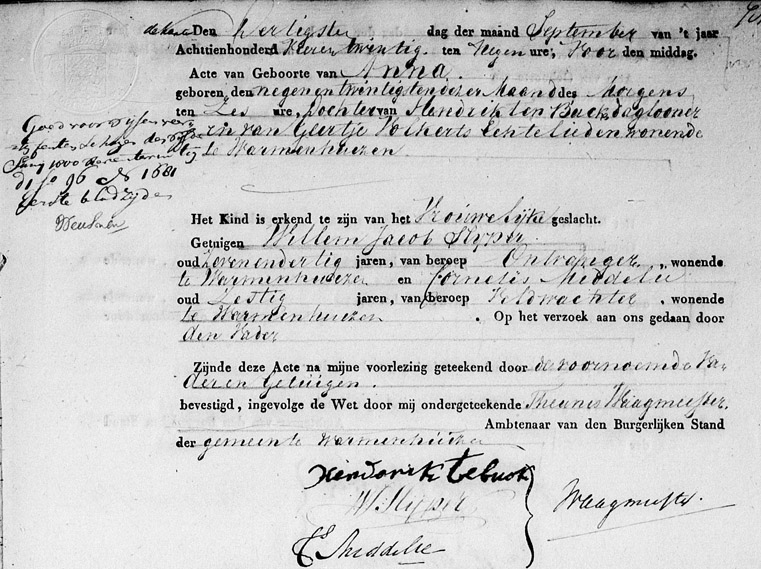 Den Dertigsten dag der maand September van 't jaar
Achttienhonderd Vierentwintig ten Negen ure, Voor den middag.
Acte van Geboorte van Anna
geboren den negenentwintigsten dezer Maand des Morgens
ten Zes ure, Dochter van Hendrik ten Buck dagloner
en van Geertje Volkerts Echtelieden wonende
te Warmenhuizen
Goed voor
eerste bladzijde
Het Kind is erkend te zijn van het Vrouwelijke geslacht.
Getuigen Willem Jacob Slyper
oud Zevenendertig jaren, van beroep Ontvanger, wonende
te Warmenhuizen en Cornelis Middelie
oud Zestig jaren, van beroep Veldwachter, wonende
te Warmenhuizen. Op het verzoek aan ons gedaan door
den Vader
Zijnde deze Acte na mijne voorlezing geteekend door de voornoemde Va-
der en Getuigen.
bevestigd, ingevolge de Wet door mij ondergeteekende Theunis Waagmeester.
Ambtenaar van den Burgerlijken Stand
der gemeente Warmenhuizen
Hendorik te buck
W. Slyper
C. Middelie
Waagmeester.